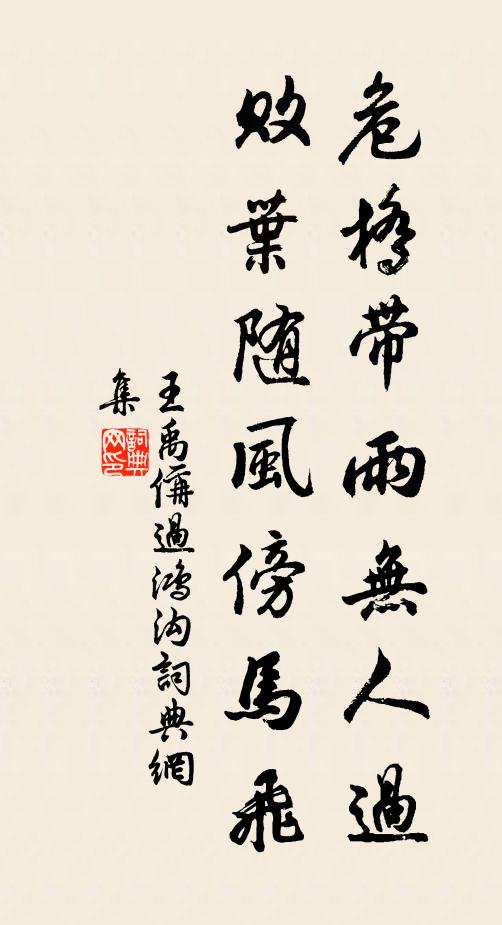 危橋帶雨無人過
敗葉随風傍馬飛
王禹偁過鴻沟詞典網
集
詞典
网印